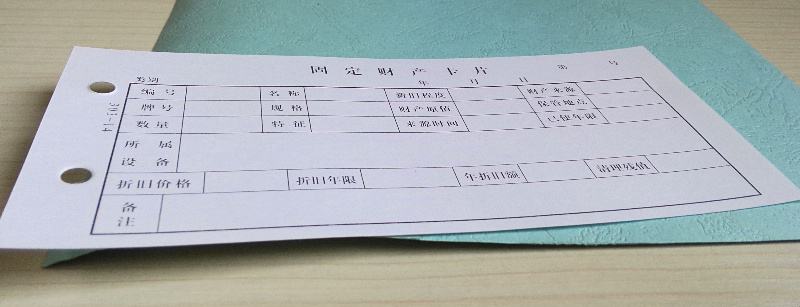 固定财产卡片
类别 年 月 日 第 号
编号 名称 新旧程度 财产来源
牌号 规格 财产原值 保管地点
数量 特征 来源时间 已使年限
所属设备
折旧价格 折旧年限 年折旧额 清理残值
备注
3013-14